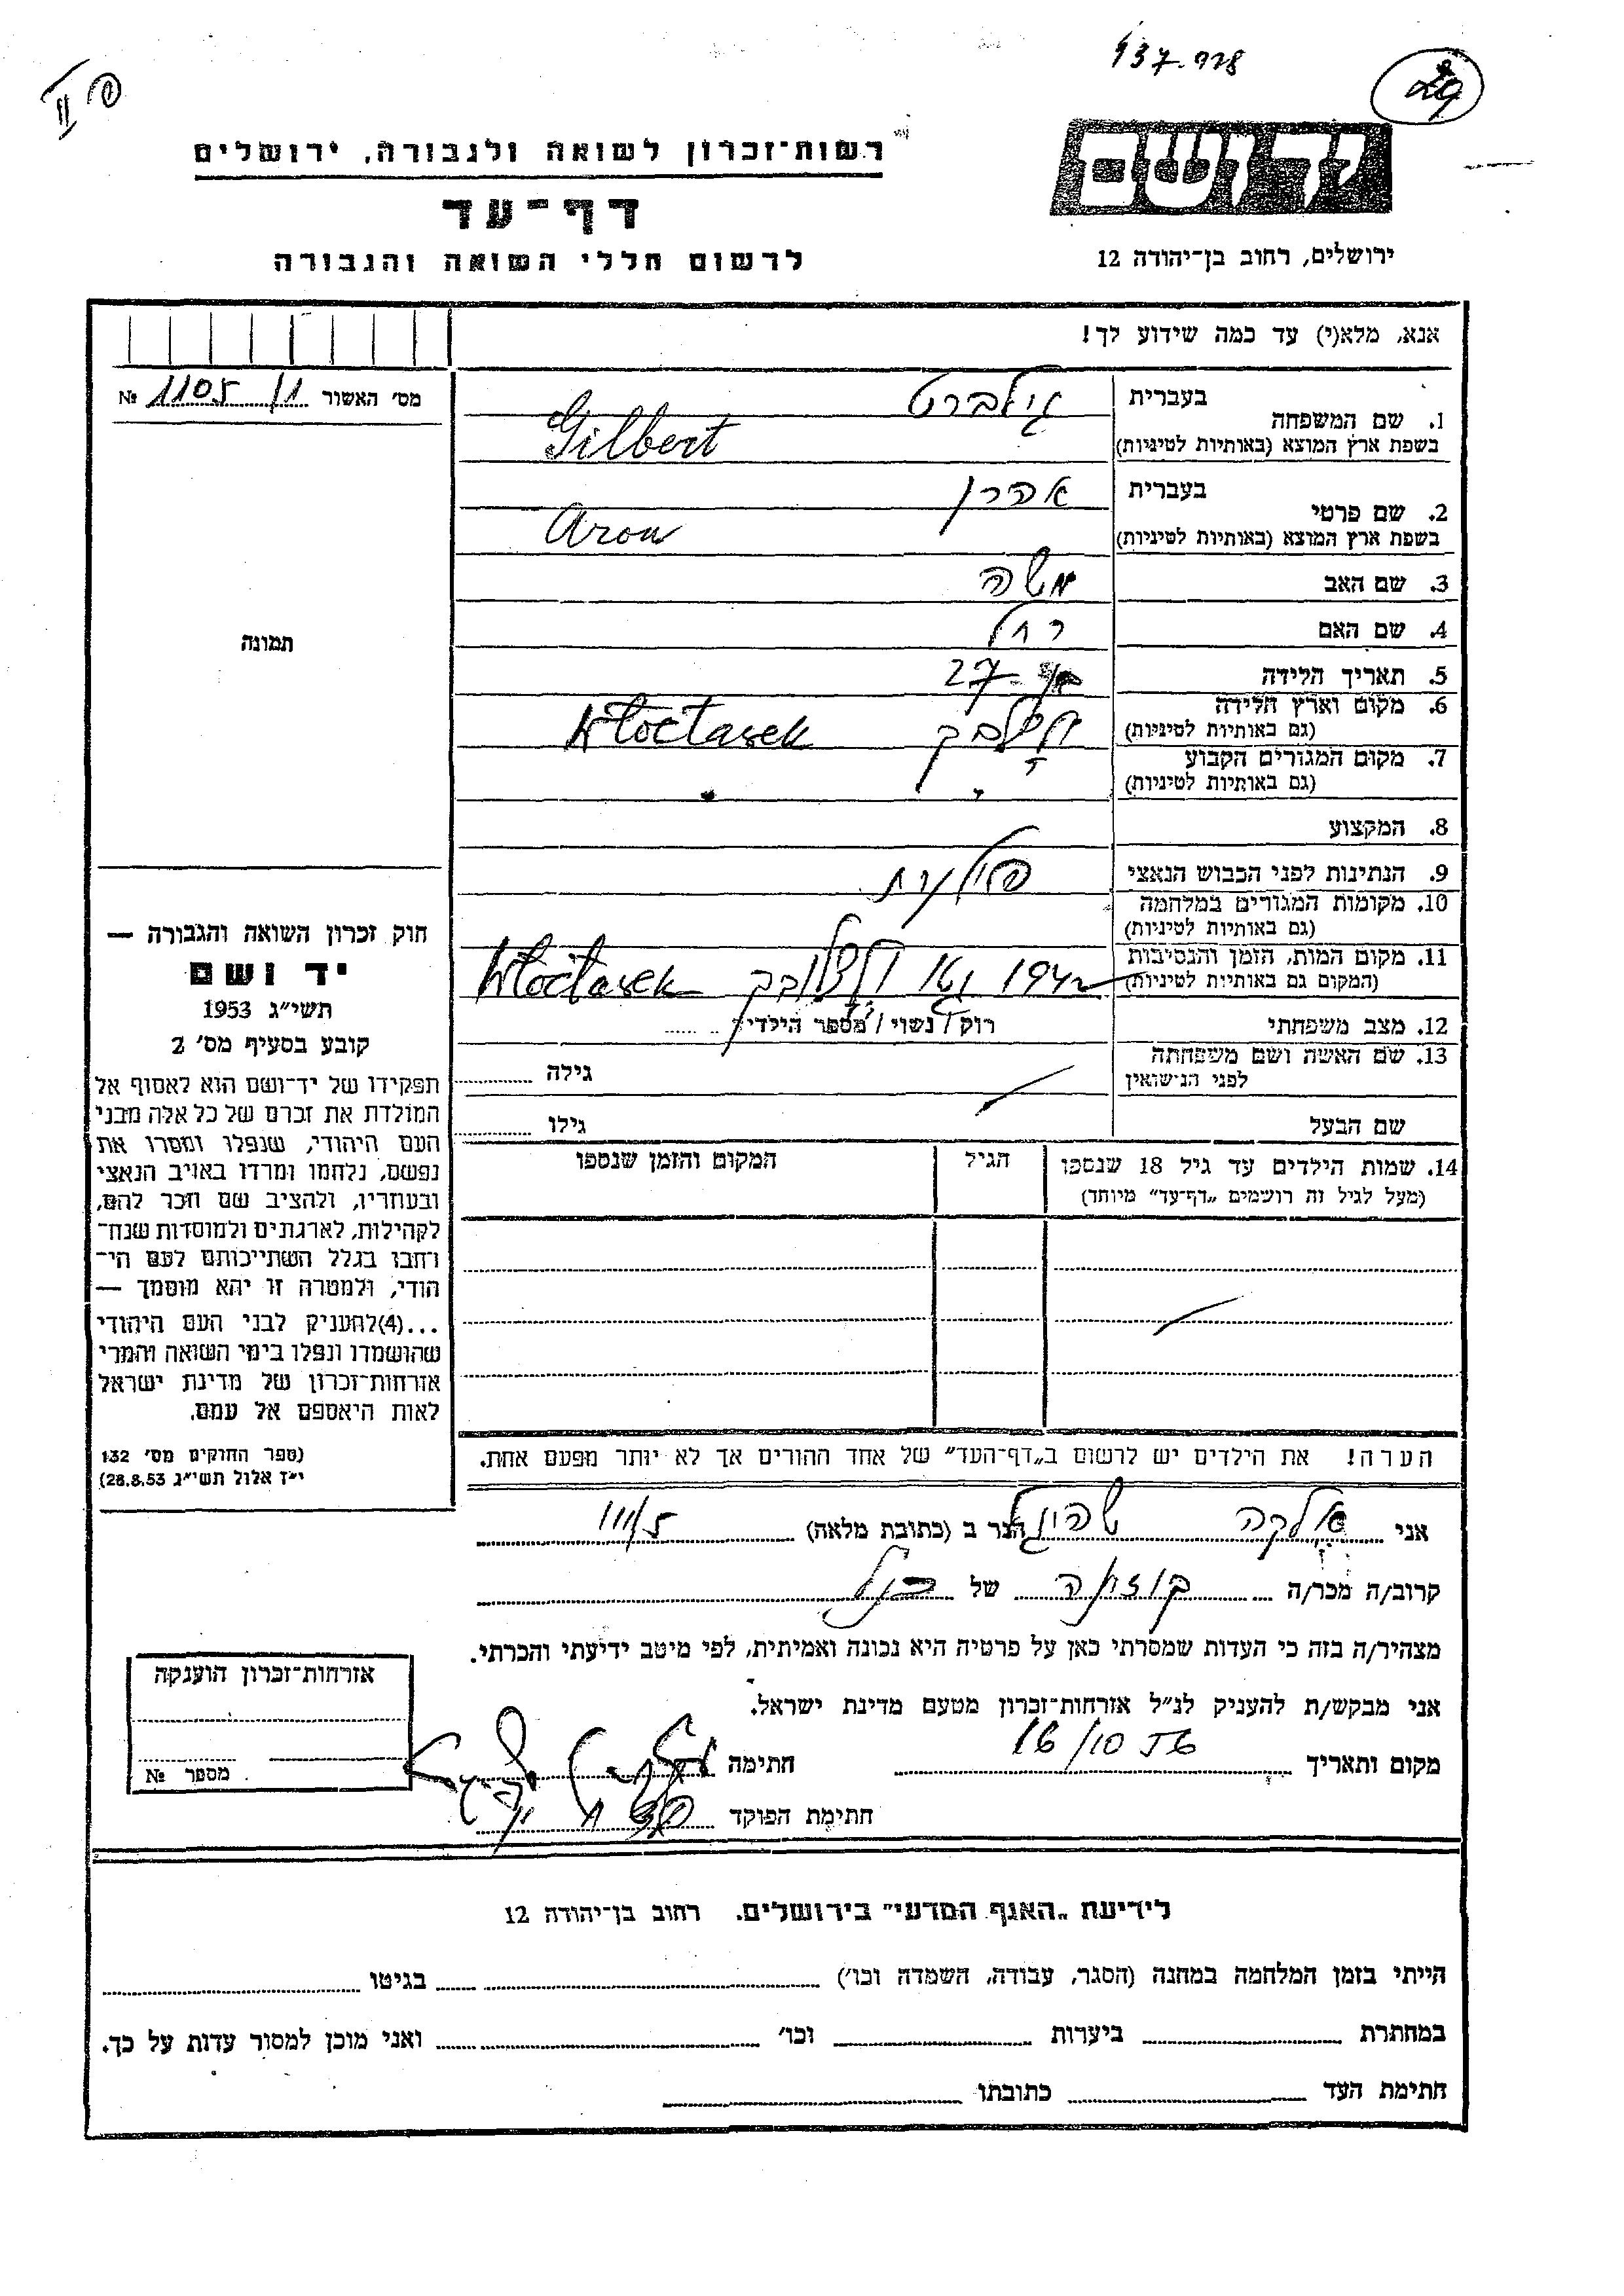 937.928
29
II
רשות־זכרון לשואה ולגבורה, ירושלים
דף־עד
לרשום חללי השואה והגבורה
יד ושם
ירושלים, רחוב בן־יהודה 12
אנא, מלא(י) עד כמה שידוע לך!
מס׳ האשור 1105/1 №
1. שם המשפחה
בעברית גילברט
בשפת ארץ המוצא (באותיות לטיניות) Gilbert
2. שם פרטי
בעברית אהרן
בשפת ארץ המוצא (באותיות לטיניות) Aron
3. שם האב משה
4. שם האם רחל
5. תאריך הלידה 27
6. מקום וארץ הלידה
(גם באותיות לטיניות) Włoctasek
7. מקום המגורים הקבוע
(גם באותיות לטיניות)
8. המקצוע
9. הנתינות לפני הכבוש הנאצי פולנית
10. מקומות המגורים במלחמה
(גם באותיות לטיניות)
11. מקום המות, הזמן והנסיבות
(המקום גם באותיות לטיניות) 1942 Włoctasek
12. מצב משפחתי רוק / נשוי / מספר הילדים
13. שם האשה ושם משפחתה
לפני הנישואין גילה
שם הבעל גילו
14. שמות הילדים עד גיל 18 שנספו הגיל המקום והזמן שנספו
(מעל לגיל זה רושמים „דף־עד” מיוחד)
הערה! את הילדים יש לרשום ב„דף־העד” של אחד ההורים אך לא יותר מפעם אחת.
תמונה
חוק זכרון השואה והגבורה —
יד ושם
תשי״ג 1953
קובע בסעיף מס׳ 2
תפקידו של יד־ושם הוא לאסוף אל
המולדת את זכרם של כל אלה מבני
העם היהודי, שנפלו ומסרו את
נפשם, נלחמו ומרדו באויב הנאצי
ובעוזריו, ולהציב שם וזכר להם,
לקהילות, לארגונים ולמוסדות שנח־
רבו בגלל השתייכותם לעם הי־
הודי, ולמטרה זו יהא מוסמך —
...(4)להעניק לבני העם היהודי
שהושמדו ונפלו בימי השואה והמרי
אזרחות־זכרון של מדינת ישראל
לאות היאספם אל עמם.
(ספר החוקים מס׳ 132
י״ז אלול תשי״ג 28.8.53)
אני אלקה הגר ב (כתובת מלאה)
קרוב/ה מכר/ה בן דודה של הנ״ל
מצהיר/ה בזה כי העדות שמסרתי כאן על פרטיה היא נכונה ואמיתית, לפי מיטב ידיעתי והכרתי.
אני מבקש/ת להעניק לנ״ל אזרחות־זכרון מטעם מדינת ישראל.
מקום ותאריך 16/10 חתימה
חתימת הפוקד
אזרחות־זכרון הוענקה
מספר №
לידיעת „האגף המדעי” בירושלים. רחוב בן־יהודה 12
הייתי בזמן המלחמה במחנה (הסגר, עבודה, השמדה וכו׳) בגיטו
במחתרת ביערות וכו׳ ואני מוכן למסור עדות על כך.
חתימת העד כתובתו